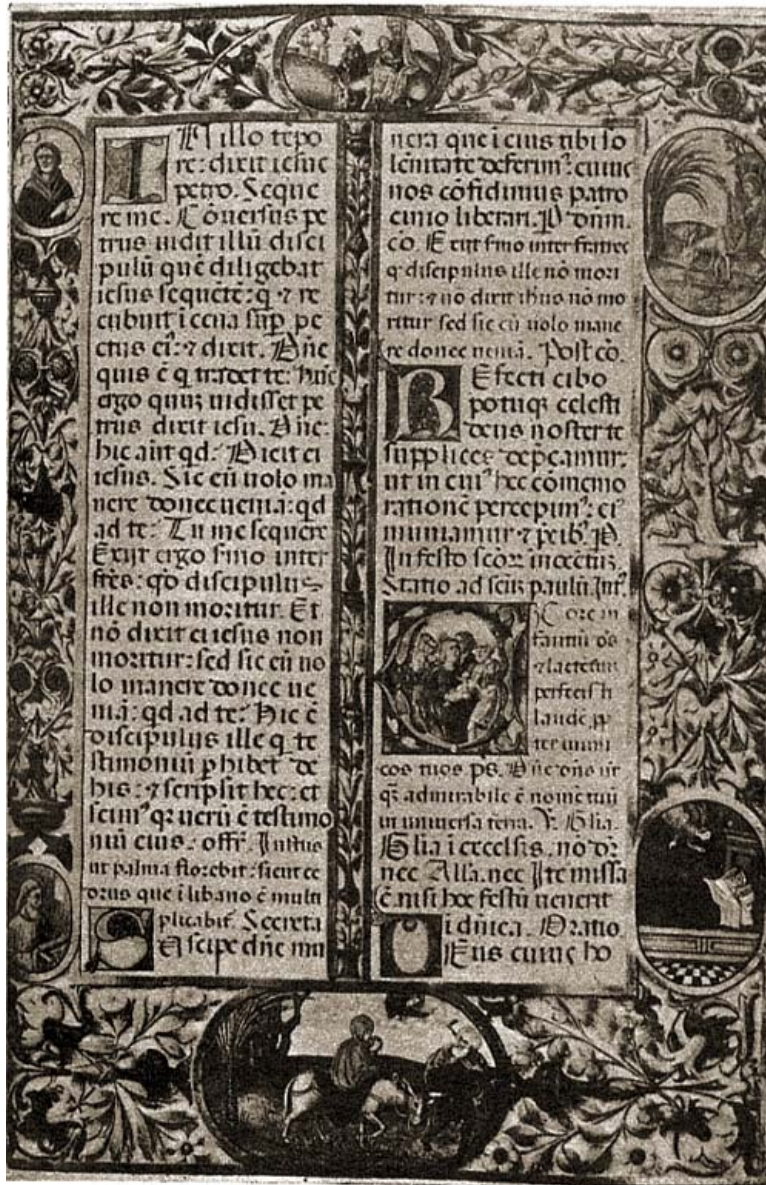 IN illo tēpo
re: dixit iesus
petro. Seque
re me. Cōversus pe
trus uidit illū disci
pulū quē diligebat
iesus sequētē: q̄ ⁊ re
cubuit ī cena sup̄ pe
ctus ei': ⁊ dixit. Dn̄e
quis ē q̄ tradet te: hūc
ergo quuȝ uidisset pe
trus dixit iesu. Dn̄e:
hic aūt qd: Dicit ei
iesus. Sic eū uolo ma
nere donec ueniā: qd
ad te: Tu me sequere
Exijt ergo s̄mo inter
frēs: qd̄ discipulus
ille non moritur. Et
nō dixit ei iesus non
moritur: sed sic eū uo
lo manere donec ue
niā: qd ad te: Hic ē
discipulus ille q̄ te
stimoniū p̄hibet de
his: ⁊ scripsit hec: et
scim' qr uerū ē testimo
niū eius. offr̄. Iustus
ut palma florebit: sicut ce
drus que ī libano ē multi
plicabit̄. Secreta
Suscipe dn̄e mu
nera que ī eius tibi so
lēnitate deferim': cuius
nos cōfidimus patro
cinio liberari. P dn̄m.
cō. Exijt s̄mo inter fratres
q̄ discipulus ille nō mori
tur: ⁊ nō dixit ihus nō mo
ritur sed sic eū uolo mane
re donec ueniā. Post cō.
REfecti cibo
potuqȝ celesti
deus noster te
supplices dep̄camur:
ut in cui' hec cōmemo
rationē percepim': ei'
muniamur ⁊ p̄cib'. P.
In festo sctōȝ inocētiȝ.
Statio ad sctm̄ paulū. Int'.
EX ore in
fantiū d's
⁊ lactētium
perfecisti
laudē. pp̄
ter inimi
cos tuos ps. Dn̄e dn̄s nr̄
q̄ admirabile ē nomē tuū
in universa terra. V. Glia.
Glia ī excelsis. nō dr̄
nec Alla. nec Ite missa
ē. nisi hoc festū uenerit
ī dn̄ica. Oratio.
DEus cuius ho